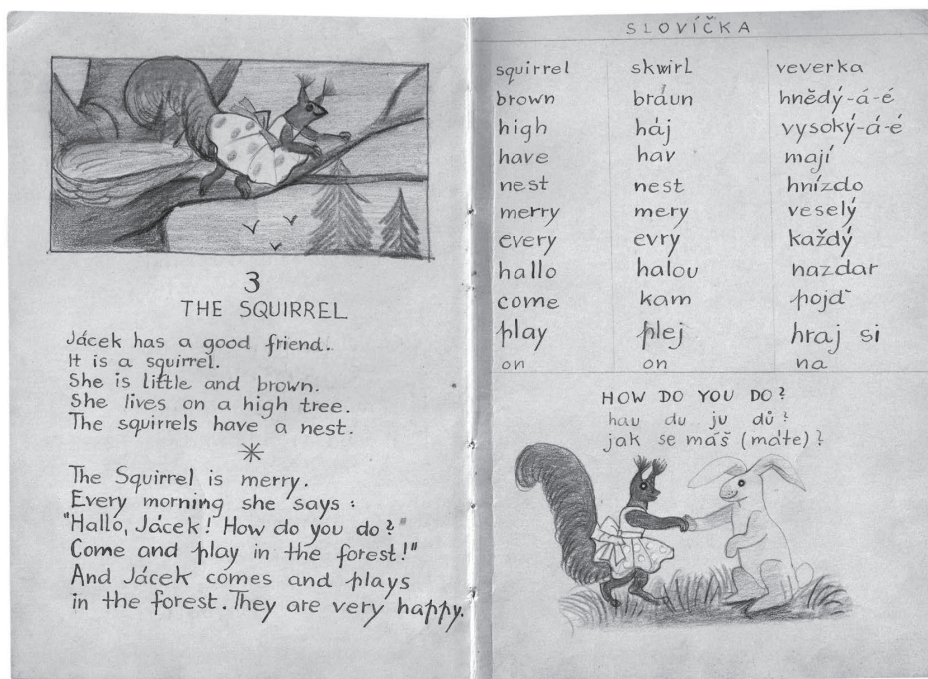 3
THE SQUIRREL
Jácek has a good friend.
It is a squirrel.
She is little and brown.
She lives on a high tree.
The squirrels have a nest.
The Squirrel is merry.
Every morning she says :
"Hallo, Jácek! How do you do?"
Come and play in the forest!"
And Jácek comes and plays
in the forest. They are very happy.
SLOVÍČKA
squirrel skwirl veverka
brown bráun hnědý-á-é
high háj vysoký-á-é
have hav mají
nest nest hnízdo
merry mery veselý
every evry každý
hallo halou nazdar
come kam pojď
play plej hraj si
on on na
HOW DO YOU DO?
hau du ju dů?
jak se máš (máte)?